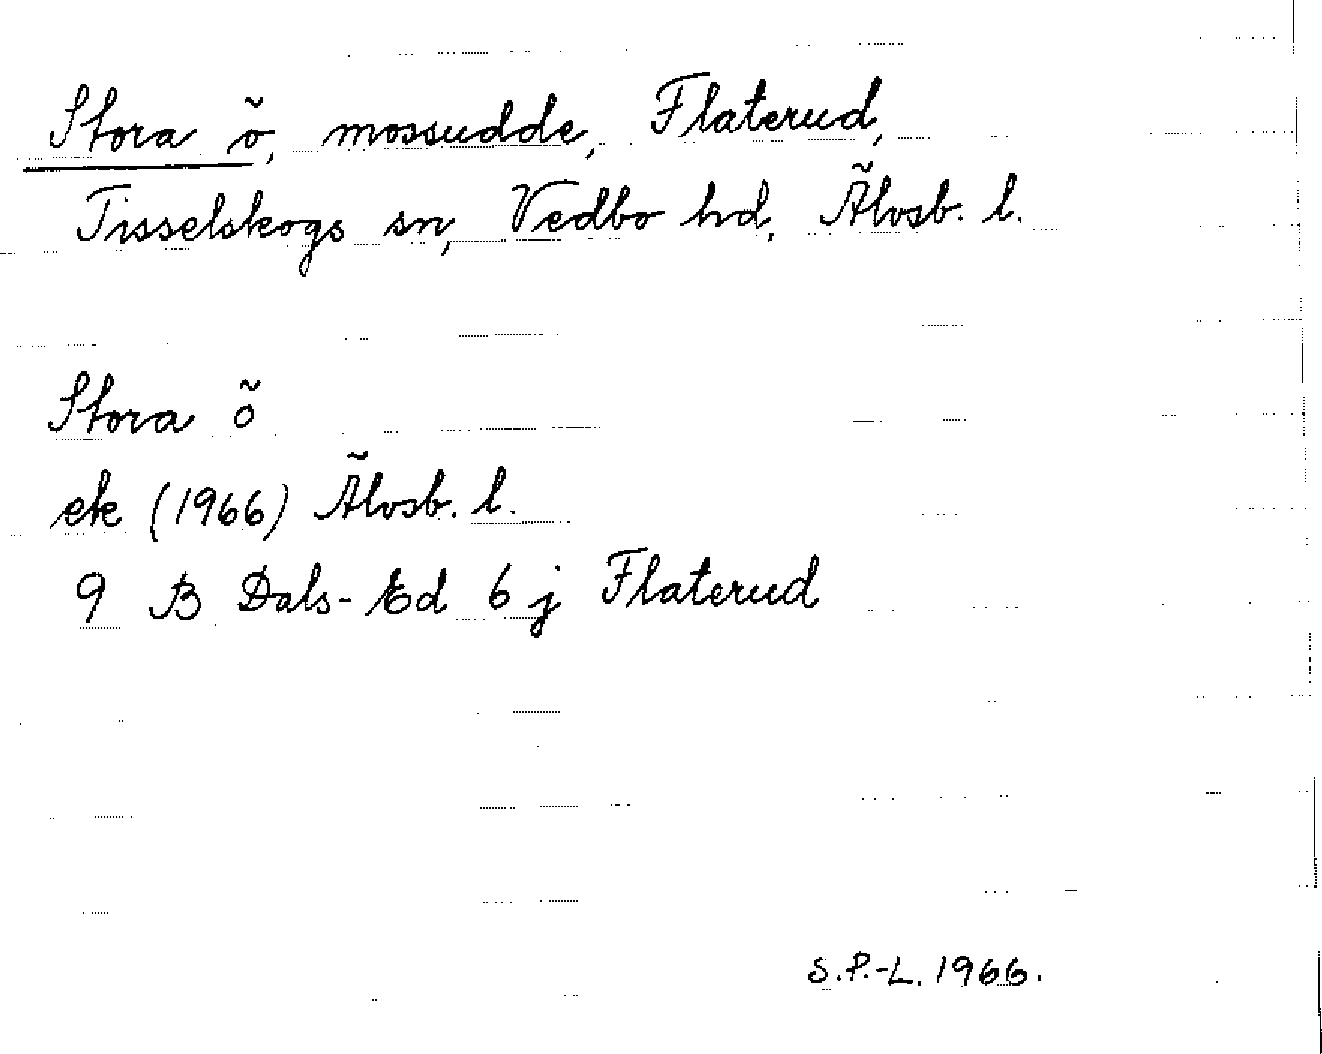 Stora ö, mossudde, Flaterud,
Tisselskogs sn, Vedbo hd, Älvsb. l.
Stora ö
ek (1966) Älvsb. l.
9 B Dals-Ed 6 j Flaterud
S.P.-L. 1966.